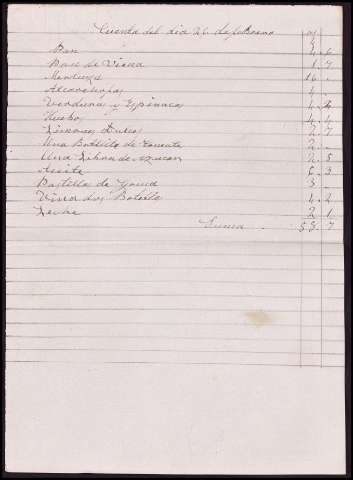 Cuenta del dia 26 de febrero
Pan 4 6
Pan de Viena 1 7
Merluza 16 -
Alcachofas 4 -
Verduras y Espinaca 4
Huebos 4 4
Limones Dulces 2 7
Una Botella de 2 -
Una Libra de Azucar 2 5
Aseite 6 3
Pastilla de Goma 3 -
Vino dos Botella 4 2
Leche 2 1
Suma 53 7